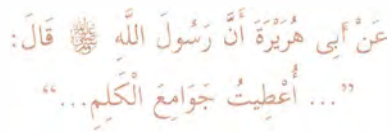 عَنْ أَبِي هُرَيْرَةَ أَنَّ رَسُولَ اللَّهِ ﷺ قَالَ:
”... أُعْطِيتُ جَوَامِعَ الْكَلِمِ...“